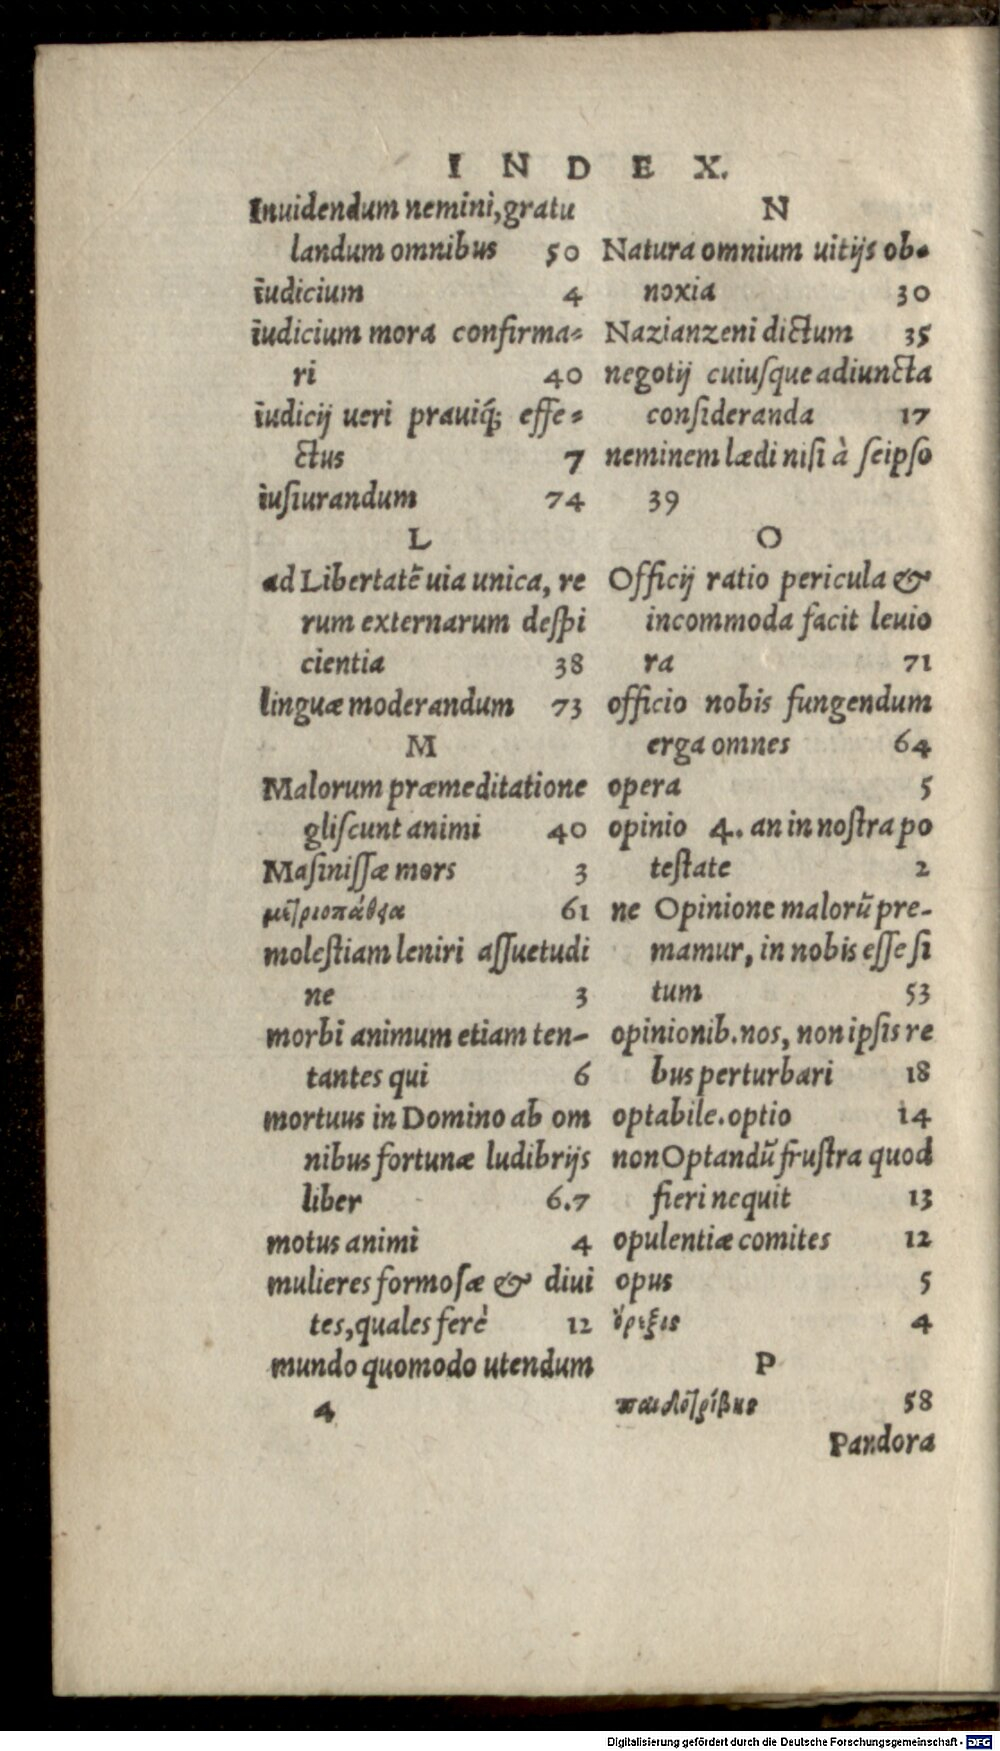 INDEX.
Inuidendum nemini, gratu
landum omnibus 50
iudicium 4
iudicium mora confirma-
ri 40
iudicij ueri prauiq́; effe-
ctus 7
iusiurandum 74
L
ad Libertatē uia unica, re
rum externarum despi
cientia 38
linguæ moderandum 73
M
Malorum præmeditatione
gliscunt animi 40
Masinissæ mors 3
μετριοπάθεια 61
molestiam leniri assuetudi
ne 3
morbi animum etiam ten-
tantes qui 6
mortuus in Domino ab om
nibus fortunæ ludibrijs
liber 6.7
motus animi 4
mulieres formosæ & diui
tes, quales ferè 12
mundo quomodo utendum
4
N
Natura omnium uitijs ob-
noxia 30
Nazianzeni dictum 35
negotij cuiusque adiuncta
consideranda 17
neminem lædi nisi à seipso
39
O
Officij ratio pericula &
incommoda facit leuio
ra 71
officio nobis fungendum
erga omnes 64
opera 5
opinio 4. an in nostra po
testate 2
ne Opinione malorū pre-
mamur, in nobis esse si
tum 53
opinionib. nos, non ipsis re
bus perturbari 18
optabile. optio 14
non Optandū frustra quod
fieri nequit 13
opulentiæ comites 12
opus 5
ὄρεξις 4
P
παιδοτρίβης 58
Pandora
Digitalisierung gefördert durch die Deutsche Forschungsgemeinschaft - DFG